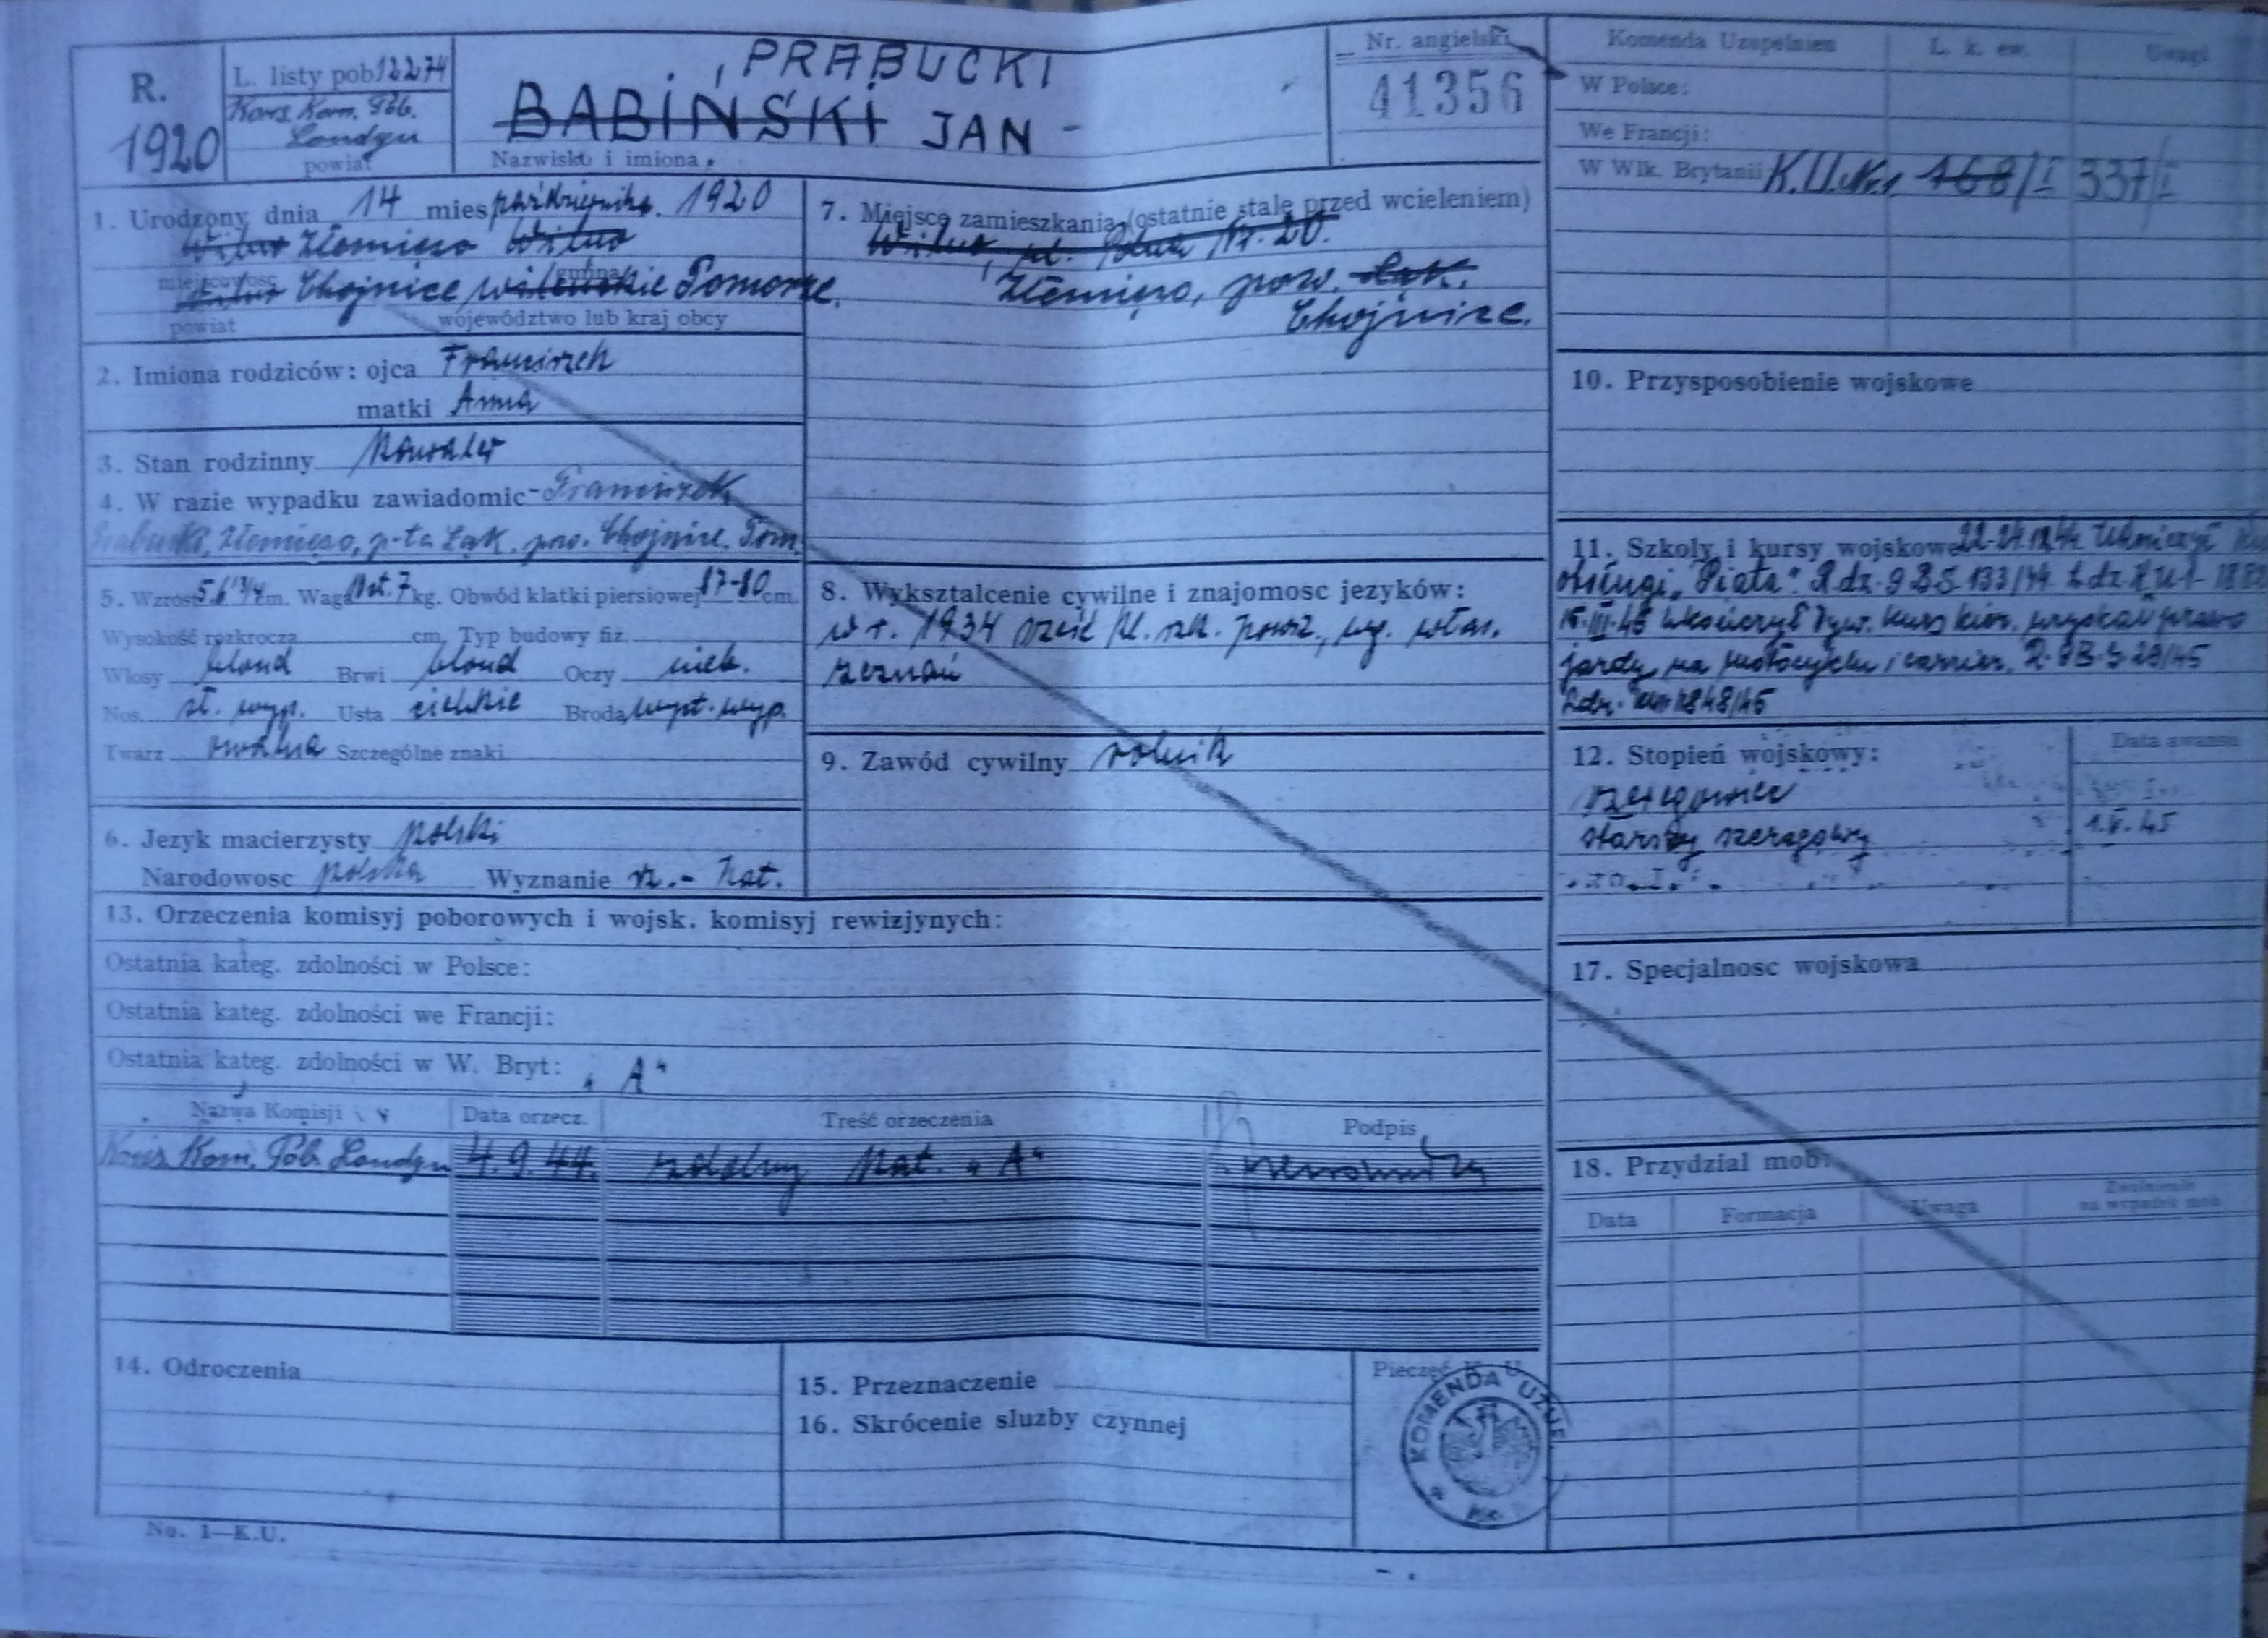 R.
1920
L. listy pob. 12274
Kom. Pob.
Londyn
powiat
PRABUCKI
BABIŃSKI JAN -
Nazwisko i imiona
Nr. angielski
41356
1. Urodzony dnia 14 mies października 1920
Wilno Złomięso Wilno
miejscowość gmina
Wilno Chojnice wileńskie Pomorze.
powiat województwo lub kraj obcy
2. Imiona rodziców: ojca Franciszek
matki Anna
3. Stan rodzinny Kawaler
4. W razie wypadku zawiadomic - Franciszek
Prabucki, Złomięso, p-ta Łąk. pow. Chojnice. Pom.
5. Wzrost 5.6 1/4 cm. Waga 7 kg. Obwód klatki piersiowej 87-80 cm.
Wysokość rozkrocza cm. Typ budowy fiz.
Włosy blond Brwi blond Oczy nieb.
Nos st. wyp. Usta Broda wyst. wyp.
Twarz owalna Szczególne znaki
6. Jezyk macierzysty polski
Narodowosc polska Wyznanie rz. - kat.
7. Miejsce zamieszkania (ostatnie stale przed wcieleniem)
Wilno, ul. Nr. 20.
Złomięso, pow. Łąk.
Chojnice.
8. Wyksztalcenie cywilne i znajomosc jezyków:
w r. 1934 sześć kl. szk. powsz., wg. włas.
zeznań
9. Zawód cywilny rolnik
Komenda Uzupelnien L. k. ew. Uwagi
W Polsce:
We Francji:
W Wlk. Brytanii K.U.Nr.1 168/I 337/I
10. Przysposobienie wojskowe
11. Szkoly i kursy wojskowe 22-24 Ukończył
obsługi "Piata" 133/44
15.III.45 Ukończył kurs kier. uzyskał prawo
jazdy na motocyklu i carrier. 29/45
1848/45
12. Stopień wojskowy: Data awansu
szeregowiec
starszy szeregowy 1.V.45
13. Orzeczenia komisyj poborowych i wojsk. komisyj rewizjynych:
Ostatnia kateg. zdolności w Polsce:
Ostatnia kateg. zdolności we Francji:
Ostatnia kateg. zdolności w W. Bryt: „A"
Nazwa Komisji Data orzecz. Treść orzeczenia Podpis
Kom. Pob. Londyn 4.9.44. zdolny kat. „A"
14. Odroczenia
15. Przeznaczenie
16. Skrócenie sluzby czynnej
Pieczęć K. U.
KOMENDA UZUPEŁ.
17. Specjalnosc wojskowa
18. Przydzial mob.
Data Formacja Uwaga Zwolnienie
na wypadek mob.
No. 1—K.U.